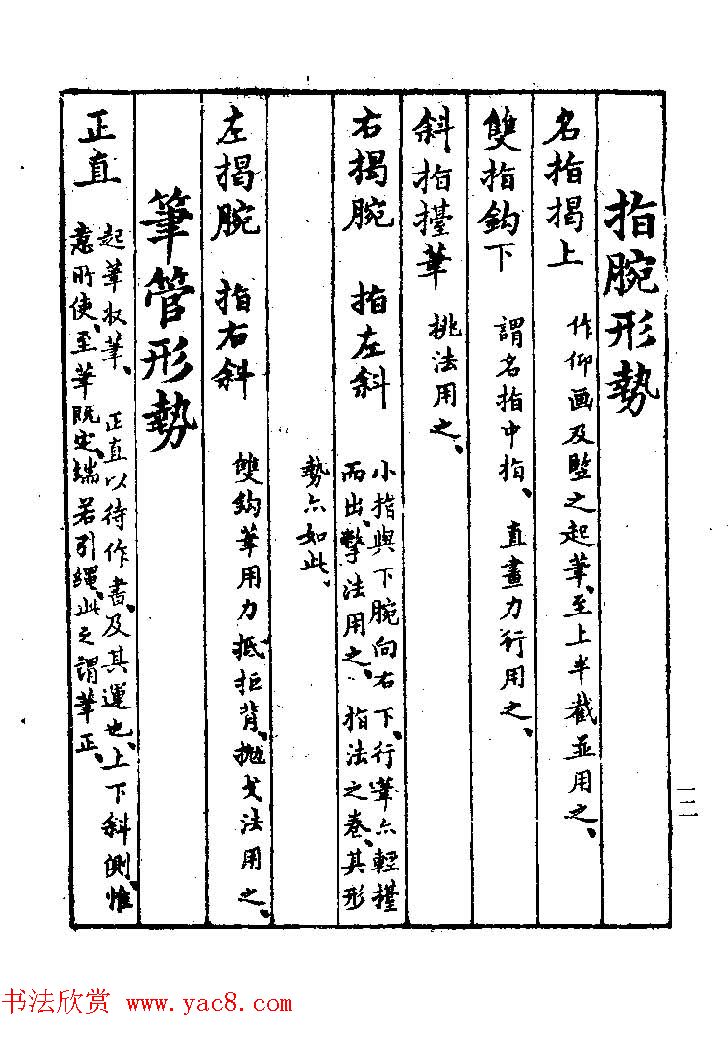 指腕形勢
名指揭上 作仰画及竪之起筆、至上半截並用之、
雙指鈎下 謂名指中指、直畫力行用之、
斜指擡筆 挑法用之、
右揭腕 指左斜 小指與下腕向右下、行筆亦輕擡
而出、撆法用之、指法之卷、其形
勢亦如此、
左揭腕 指右斜 雙鈎筆用力抵拒背、拋戈法用之、
筆管形勢
正直 起筆收筆、正直以待作書、及其運也、上下斜側、惟
意所使、至筆既定、端若引繩、此之謂筆正、
一二
书法欣赏 www.yac8.com